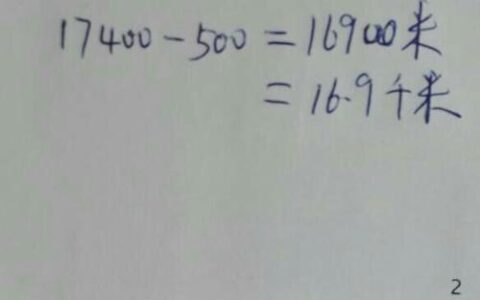 17400-500=16900米
=16.9千米
2